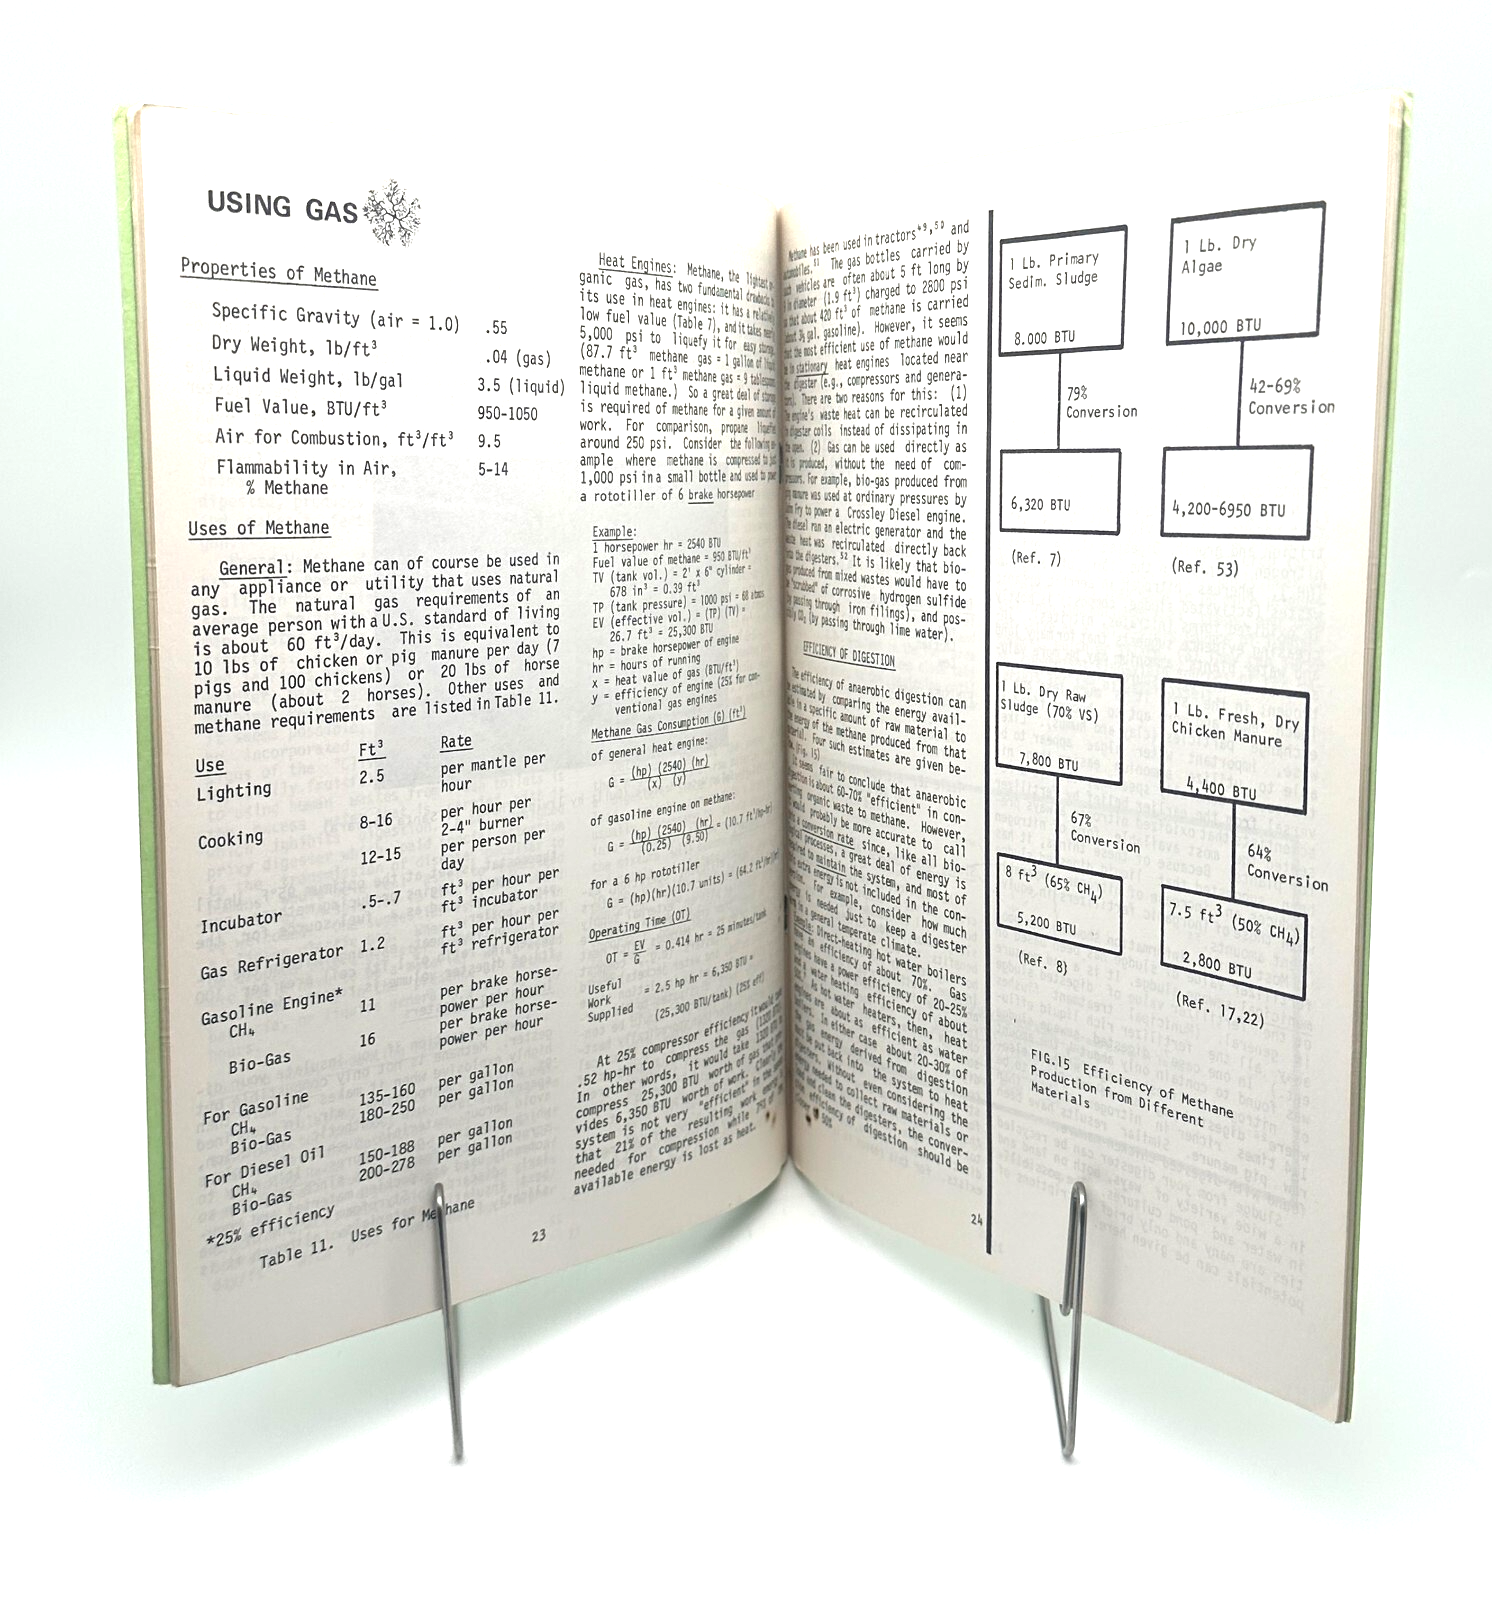 USING GAS
Properties of Methane
Specific Gravity (air = 1.0) .55
Dry Weight, lb/ft³ .04 (gas)
Liquid Weight, lb/gal 3.5 (liquid)
Fuel Value, BTU/ft³ 950-1050
Air for Combustion, ft³/ft³ 9.5
Flammability in Air, 5-14
% Methane
Uses of Methane
General: Methane can of course be used in
any appliance or utility that uses natural
gas. The natural gas requirements of an
average person with a U.S. standard of living
is about 60 ft³/day. This is equivalent to
10 lbs of chicken or pig manure per day (7
pigs and 100 chickens) or 20 lbs of horse
manure (about 2 horses). Other uses and
methane requirements are listed in Table 11.
Use Ft³ Rate
Lighting 2.5 per mantle per
hour
Cooking 8-16 per hour per
2-4" burner
12-15 per person per
day
Incubator .5-.7 ft³ per hour per
ft³ incubator
Gas Refrigerator 1.2 ft³ per hour per
ft³ refrigerator
Gasoline Engine*
CH₄ 11 per brake horse-
power per hour
Bio-Gas 16 per brake horse-
power per hour
For Gasoline
CH₄ 135-160 per gallon
Bio-Gas 180-250 per gallon
For Diesel Oil
CH₄ 150-188 per gallon
Bio-Gas 200-278 per gallon
*25% efficiency
Table 11. Uses for Methane
Heat Engines: Methane, the lightest
ganic gas, has two fundamental drawbacks
its use in heat engines: it has a relatively
low fuel value (Table 7), and it takes nearly
5,000 psi to liquefy it for easy storage.
(87.7 ft³ methane gas = 1 gallon of liquid
methane or 1 ft³ methane gas = 9 tablespoons
liquid methane.) So a great deal of storage
is required of methane for a given amount of
work. For comparison, propane liquefies
around 250 psi. Consider the following
ample where methane is compressed to just
1,000 psi in a small bottle and used to power
a rototiller of 6 brake horsepower
Example:
1 horsepower hr = 2540 BTU
Fuel value of methane = 950 BTU/ft³
TV (tank vol.) = 2' x 6" cylinder =
678 in³ = 0.39 ft³
TP (tank pressure) = 1000 psi = 68 atmos
EV (effective vol.) = (TP) (TV) =
26.7 ft³ = 25,300 BTU
hp = brake horsepower of engine
hr = hours of running
x = heat value of gas (BTU/ft³)
y = efficiency of engine (25% for con-
ventional gas engines
Methane Gas Consumption (G) (ft³)
of general heat engine:
G = (hp) (2540) (hr)
(x) (y)
of gasoline engine on methane:
G = (hp) (2540) (hr) = (10.7 ft³/hp-hr)
(0.25) (950)
for a 6 hp rototiller
G = (hp)(hr)(10.7 units) = (64.2 ft³/hr)
Operating Time (OT)
OT = EV = 0.414 hr = 25 minutes/tank
G
Useful
Work = 2.5 hp hr = 6,350 BTU =
Supplied (25,300 BTU/tank) (25% eff)
At 25% compressor efficiency it would take
.52 hp-hr to compress the gas
In other words, it would take 1300 BTU to
compress 25,300 BTU worth of gas that
vides 6,350 BTU worth of work. Clearly the
system is not very "efficient" in the sense
that 21% of the resulting work energy
needed for compression while 75% of the
available energy is lost as heat.
23
Methane has been used in tractors⁴⁹,⁵⁰ and
automobiles.⁵¹ The gas bottles carried by
such vehicles are often about 5 ft long by
in diameter (1.9 ft³) charged to 2800 psi
so that about 420 ft³ of methane is carried
(about 3½ gal. gasoline). However, it seems
that the most efficient use of methane would
be in stationary heat engines located near
the digester (e.g., compressors and genera-
tors). There are two reasons for this: (1)
The engine's waste heat can be recirculated
in digester coils instead of dissipating in
the open. (2) Gas can be used directly as
it is produced, without the need of com-
pressors. For example, bio-gas produced from
pig manure was used at ordinary pressures by
John Fry to power a Crossley Diesel engine.
The diesel ran an electric generator and the
waste heat was recirculated directly back
into the digesters.⁵² It is likely that bio-
gas produced from mixed wastes would have to
be "scrubbed" of corrosive hydrogen sulfide
(by passing through iron filings), and pos-
sibly CO₂ (by passing through lime water).
EFFICIENCY OF DIGESTION
The efficiency of anaerobic digestion can
be estimated by comparing the energy avail-
able in a specific amount of raw material to
the energy of the methane produced from that
material. Four such estimates are given be-
low. (Fig. 15)
It seems fair to conclude that anaerobic
digestion is about 60-70% "efficient" in con-
verting organic waste to methane. However,
it would probably be more accurate to call
this a conversion rate since, like all bio-
logical processes, a great deal of energy is
required to maintain the system, and most of
this extra energy is not included in the con-
version. For example, consider how much
energy is needed just to keep a digester
warm in a general temperate climate.
Example: Direct-heating hot water boilers
have an efficiency of about 70%. Gas
engines have a power efficiency of 20-25%
and a water heating efficiency of about
50%. As hot water heaters, then, heat
engines are about as efficient as water
boilers. In either case about 20-30% of
the gas energy derived from digestion
must be put back into the system to heat
digesters. Without even considering the
energy needed to collect raw materials or
load and clean the digesters, the conver-
sion efficiency of digestion should be
50%
24
1 Lb. Primary
Sedim. Sludge
8.000 BTU
79%
Conversion
6,320 BTU
(Ref. 7)
1 Lb. Dry
Algae
10,000 BTU
42-69%
Conversion
4,200-6950 BTU
(Ref. 53)
1 Lb. Dry Raw
Sludge (70% VS)
7,800 BTU
67%
Conversion
8 ft³ (65% CH₄)
5,200 BTU
(Ref. 8)
1 Lb. Fresh, Dry
Chicken Manure
4,400 BTU
64%
Conversion
7.5 ft³ (50% CH₄)
2,800 BTU
(Ref. 17,22)
FIG.15 Efficiency of Methane
Production from Different
Materials